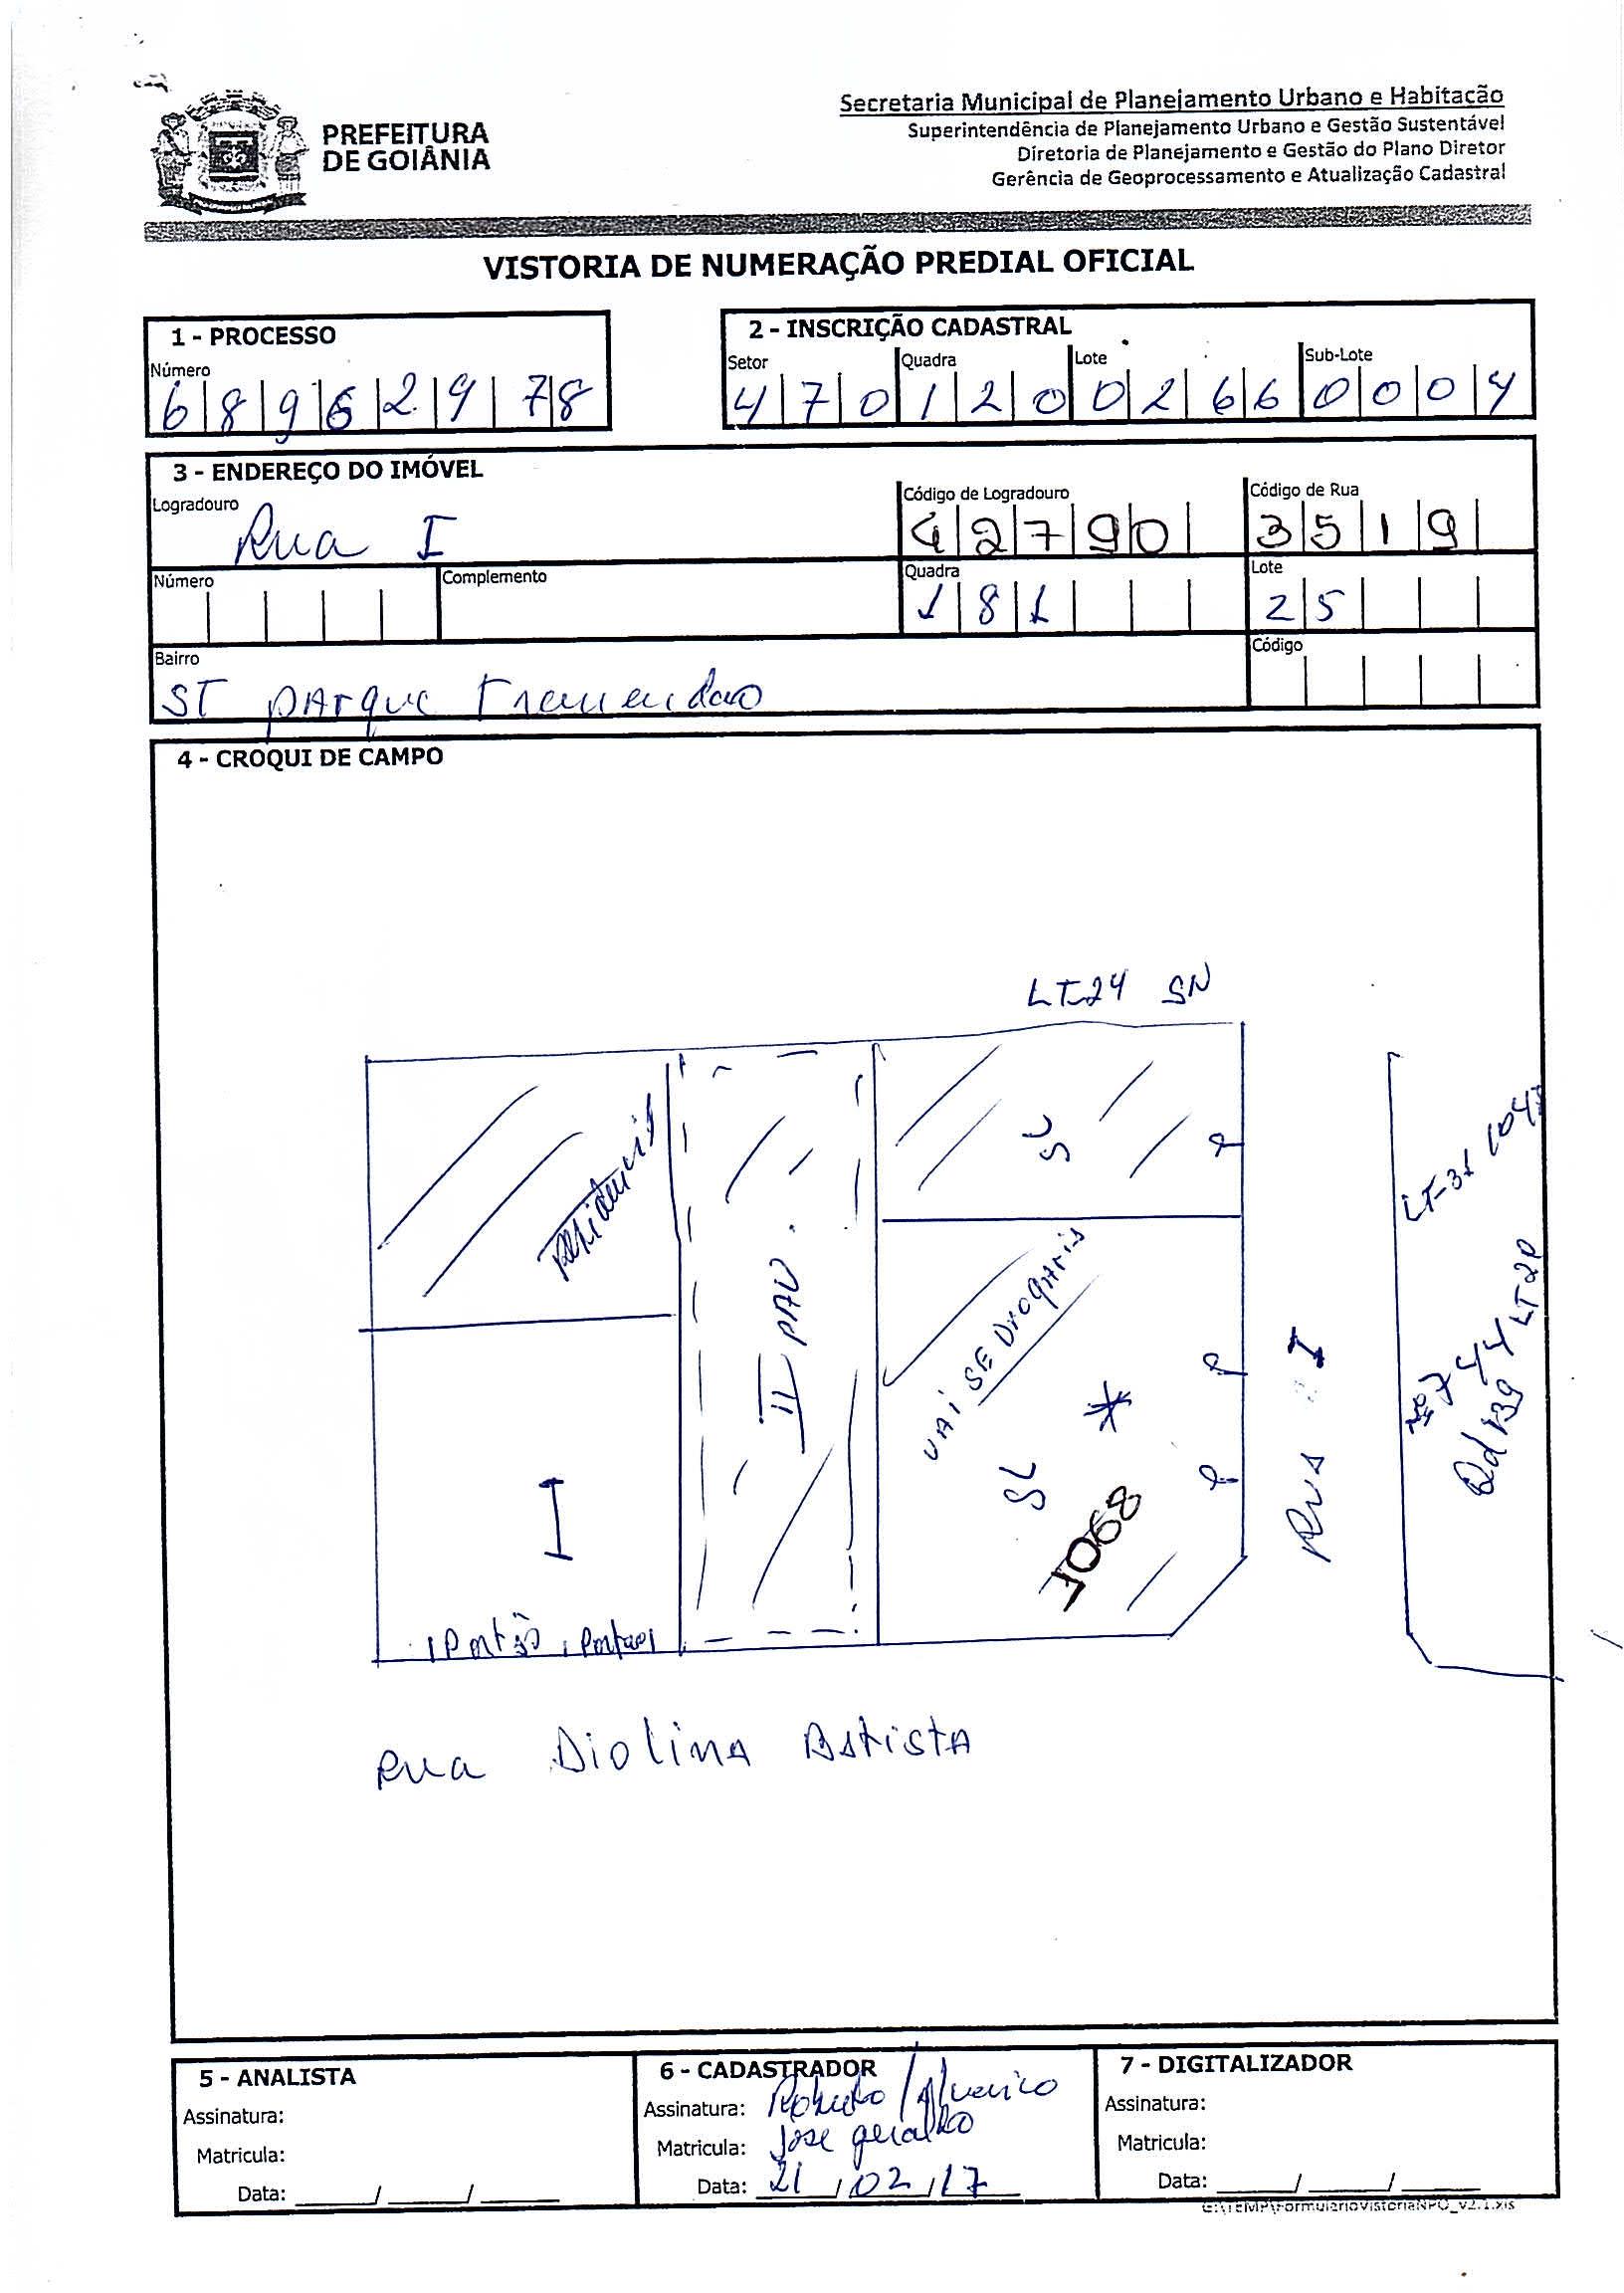 PREFEITURA
DE GOIÂNIA
Secretaria Municipal de Planejamento Urbano e Habitação
Superintendência de Planejamento Urbano e Gestão Sustentável
Diretoria de Planejamento e Gestão do Plano Diretor
Gerência de Geoprocessamento e Atualização Cadastral
VISTORIA DE NUMERAÇÃO PREDIAL OFICIAL
1 - PROCESSO
Número
6 8 9 6 2 9 78
2 - INSCRIÇÃO CADASTRAL
Setor Quadra Lote Sub-Lote
4 7 0 1 2 0 0 2 6 6 0 0 0 4
3 - ENDEREÇO DO IMÓVEL
Logradouro Código de Logradouro Código de Rua
Rua I 4 2 7 9 0 3 5 1 9
Número Complemento Quadra Lote
1 8 1 2 5
Bairro Código
ST PArque Tremendao
4 - CROQUI DE CAMPO
LT-24 SN
Residencia
II PAV.
SL
VAi SE DrogAris
SL *
1068
I
Portão Portao
RuA I
LT-31
Nº 744 LT20
Qd 139
Rua DiolinA BAtistA
5 - ANALISTA
Assinatura:
Matricula:
Data: ____/____/____
6 - CADASTRADOR
Assinatura: Roberto /
Matricula: Jose geraldo
Data: 21/02/17
7 - DIGITALIZADOR
Assinatura:
Matricula:
Data: ____/____/____
G:\TEMP\FormularioVistoriaNPO_v2.1.xls